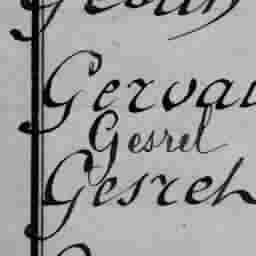 Gervai
Gesrel
Gesreh